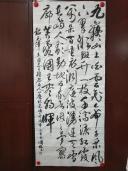 九嶷山上白云飞帝子乘风
下翠微斑竹一枝千滴泪红霞
万朵百重衣洞庭波涌连天雪
长岛人歌动地诗我欲因之梦寥
廓芙蓉国里尽朝晖